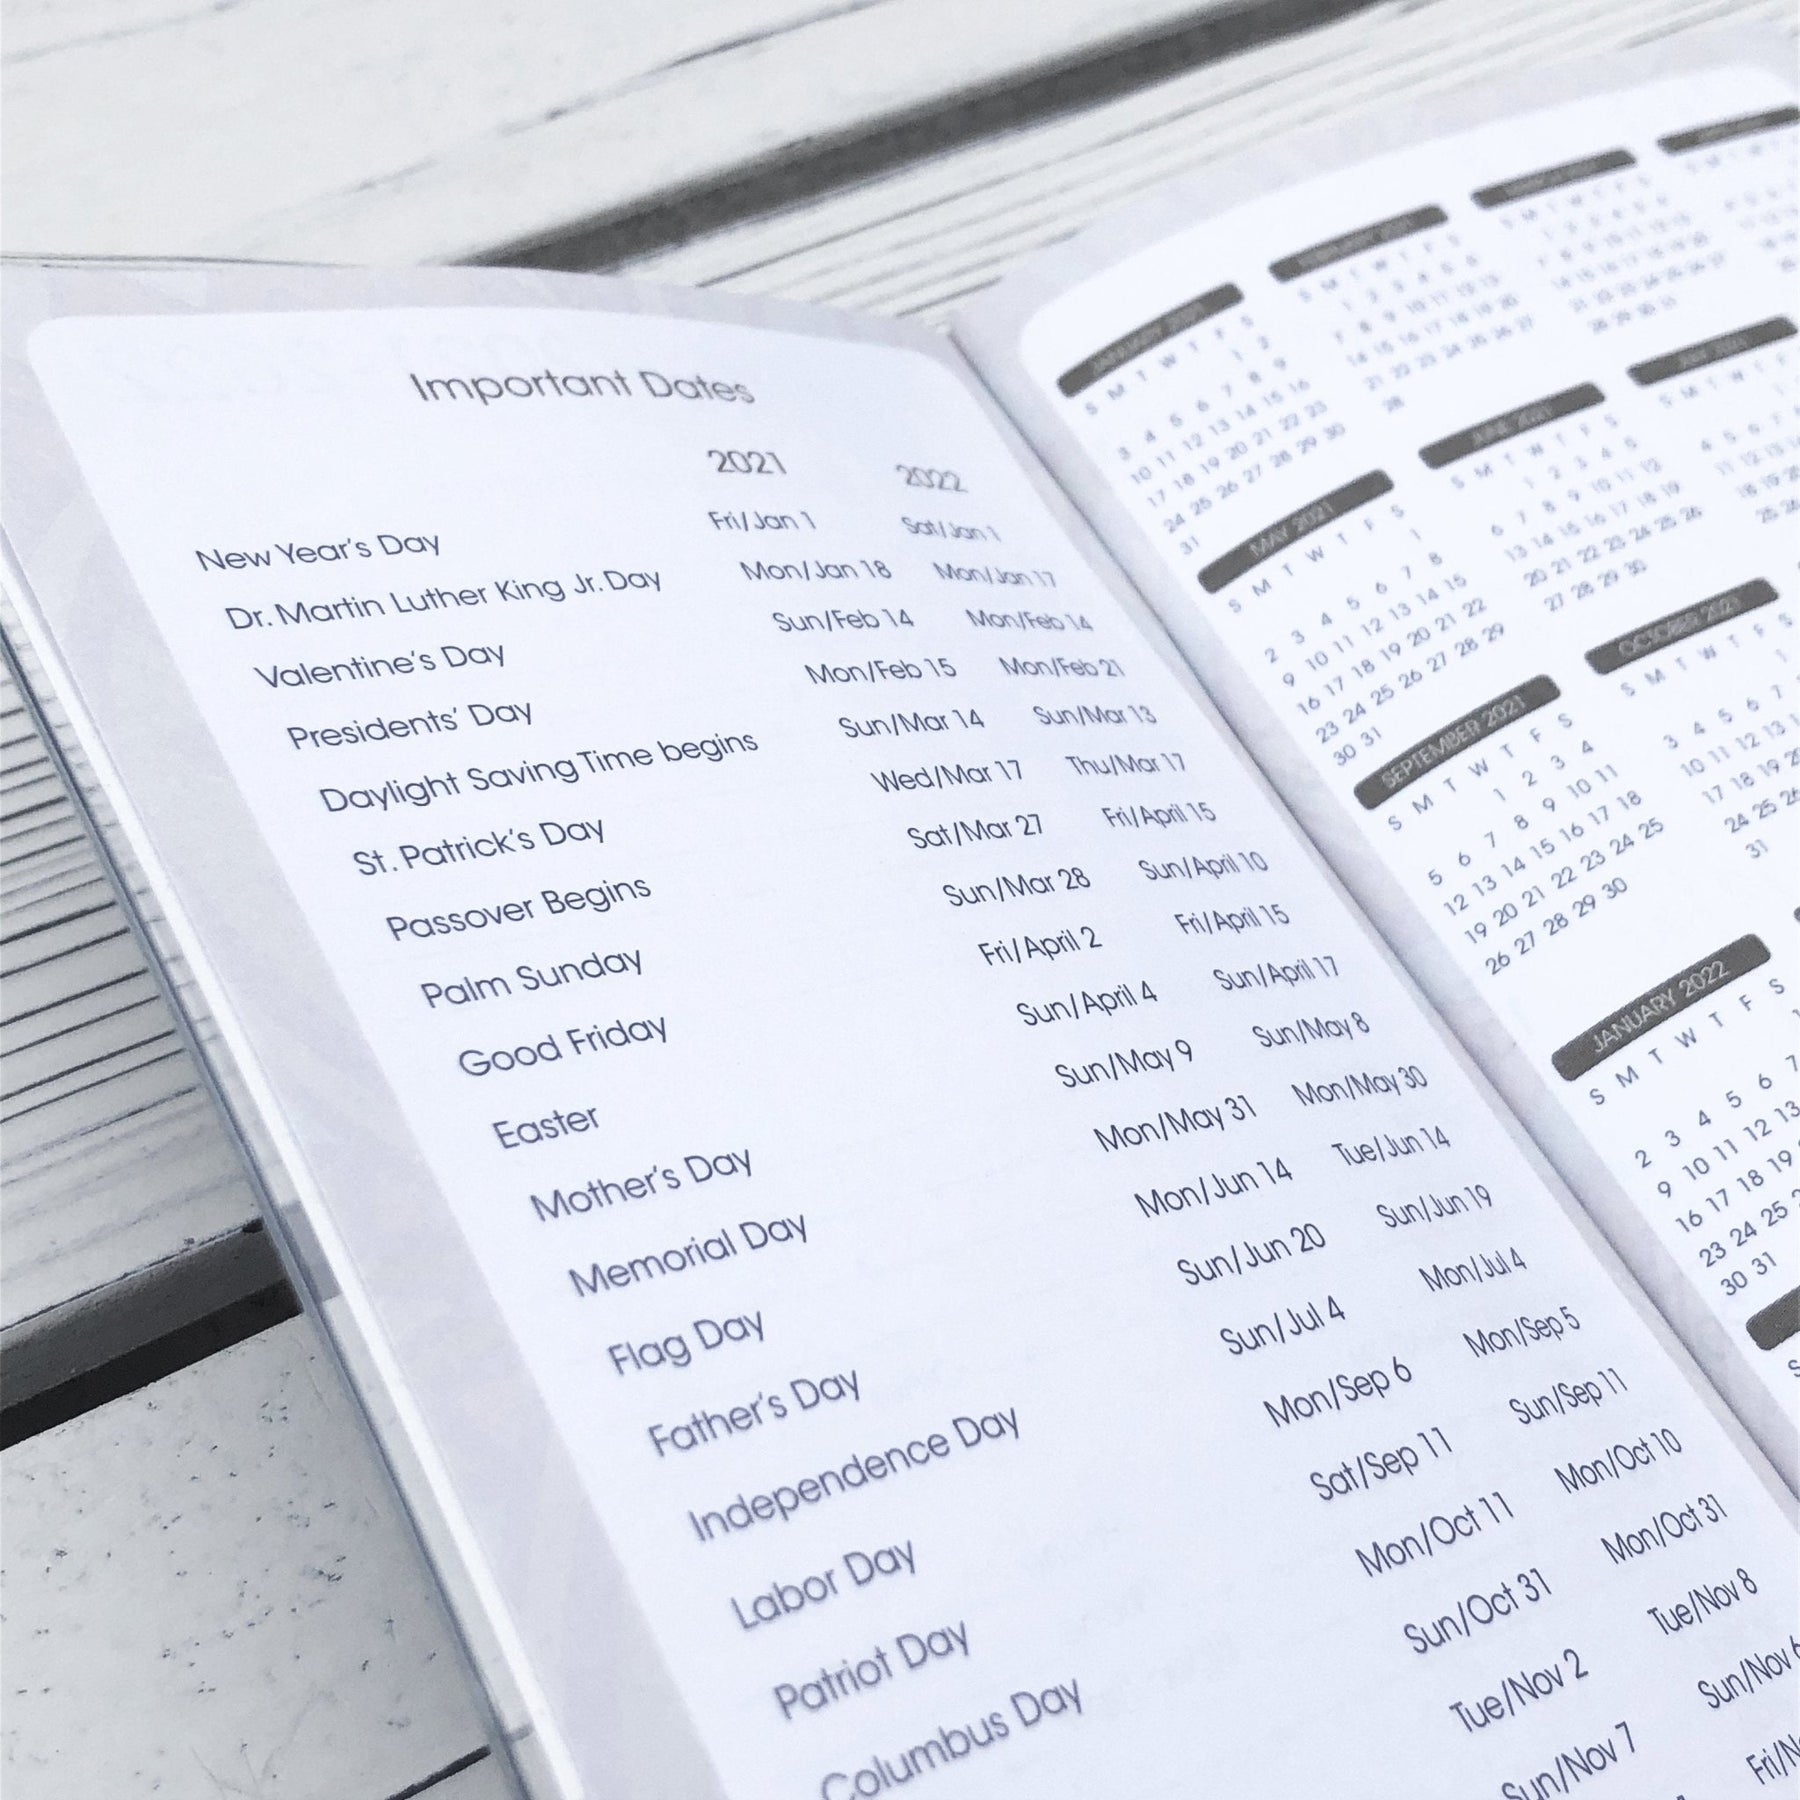 Important Dates
2021 2022
New Year's Day Fri/Jan 1 Sat/Jan 1
Dr. Martin Luther King Jr. Day Mon/Jan 18 Mon/Jan 17
Valentine's Day Sun/Feb 14 Mon/Feb 14
Presidents' Day Mon/Feb 15 Mon/Feb 21
Daylight Saving Time begins Sun/Mar 14 Sun/Mar 13
St. Patrick's Day Wed/Mar 17 Thu/Mar 17
Passover Begins Sat/Mar 27 Fri/April 15
Palm Sunday Sun/Mar 28 Sun/April 10
Good Friday Fri/April 2 Fri/April 15
Easter Sun/April 4 Sun/April 17
Mother's Day Sun/May 9 Sun/May 8
Memorial Day Mon/May 31 Mon/May 30
Flag Day Mon/Jun 14 Tue/Jun 14
Father's Day Sun/Jun 20 Sun/Jun 19
Independence Day Sun/Jul 4 Mon/Jul 4
Labor Day Mon/Sep 6 Mon/Sep 5
Patriot Day Sat/Sep 11 Sun/Sep 11
Columbus Day Mon/Oct 11 Mon/Oct 10
Sun/Oct 31 Mon/Oct 31
Tue/Nov 2 Tue/Nov 8
Sun/Nov 7 Sun/Nov 6
JANUARY 2021
S M T W T F S
1 2
3 4 5 6 7 8 9
10 11 12 13 14 15 16
17 18 19 20 21 22 23
24 25 26 27 28 29 30
31
FEBRUARY 2021
S M T W T F S
1 2 3 4 5 6
7 8 9 10 11 12 13
14 15 16 17 18 19 20
21 22 23 24 25 26 27
28
MAY 2021
S M T W T F S
1
2 3 4 5 6 7 8
9 10 11 12 13 14 15
16 17 18 19 20 21 22
23 24 25 26 27 28 29
30 31
JUNE 2021
S M T W T F S
1 2 3 4 5
6 7 8 9 10 11 12
13 14 15 16 17 18 19
20 21 22 23 24 25 26
27 28 29 30
SEPTEMBER 2021
S M T W T F S
1 2 3 4
5 6 7 8 9 10 11
12 13 14 15 16 17 18
19 20 21 22 23 24 25
26 27 28 29 30
OCTOBER 2021
S M T W T F S
1
3 4 5 6 7
10 11 12 13
17 18 19 20
24 25 26
31
JANUARY 2022
S M T W T F S
2 3 4 5 6 7
9 10 11 12 13
16 17 18 19
23 24 25
30 31